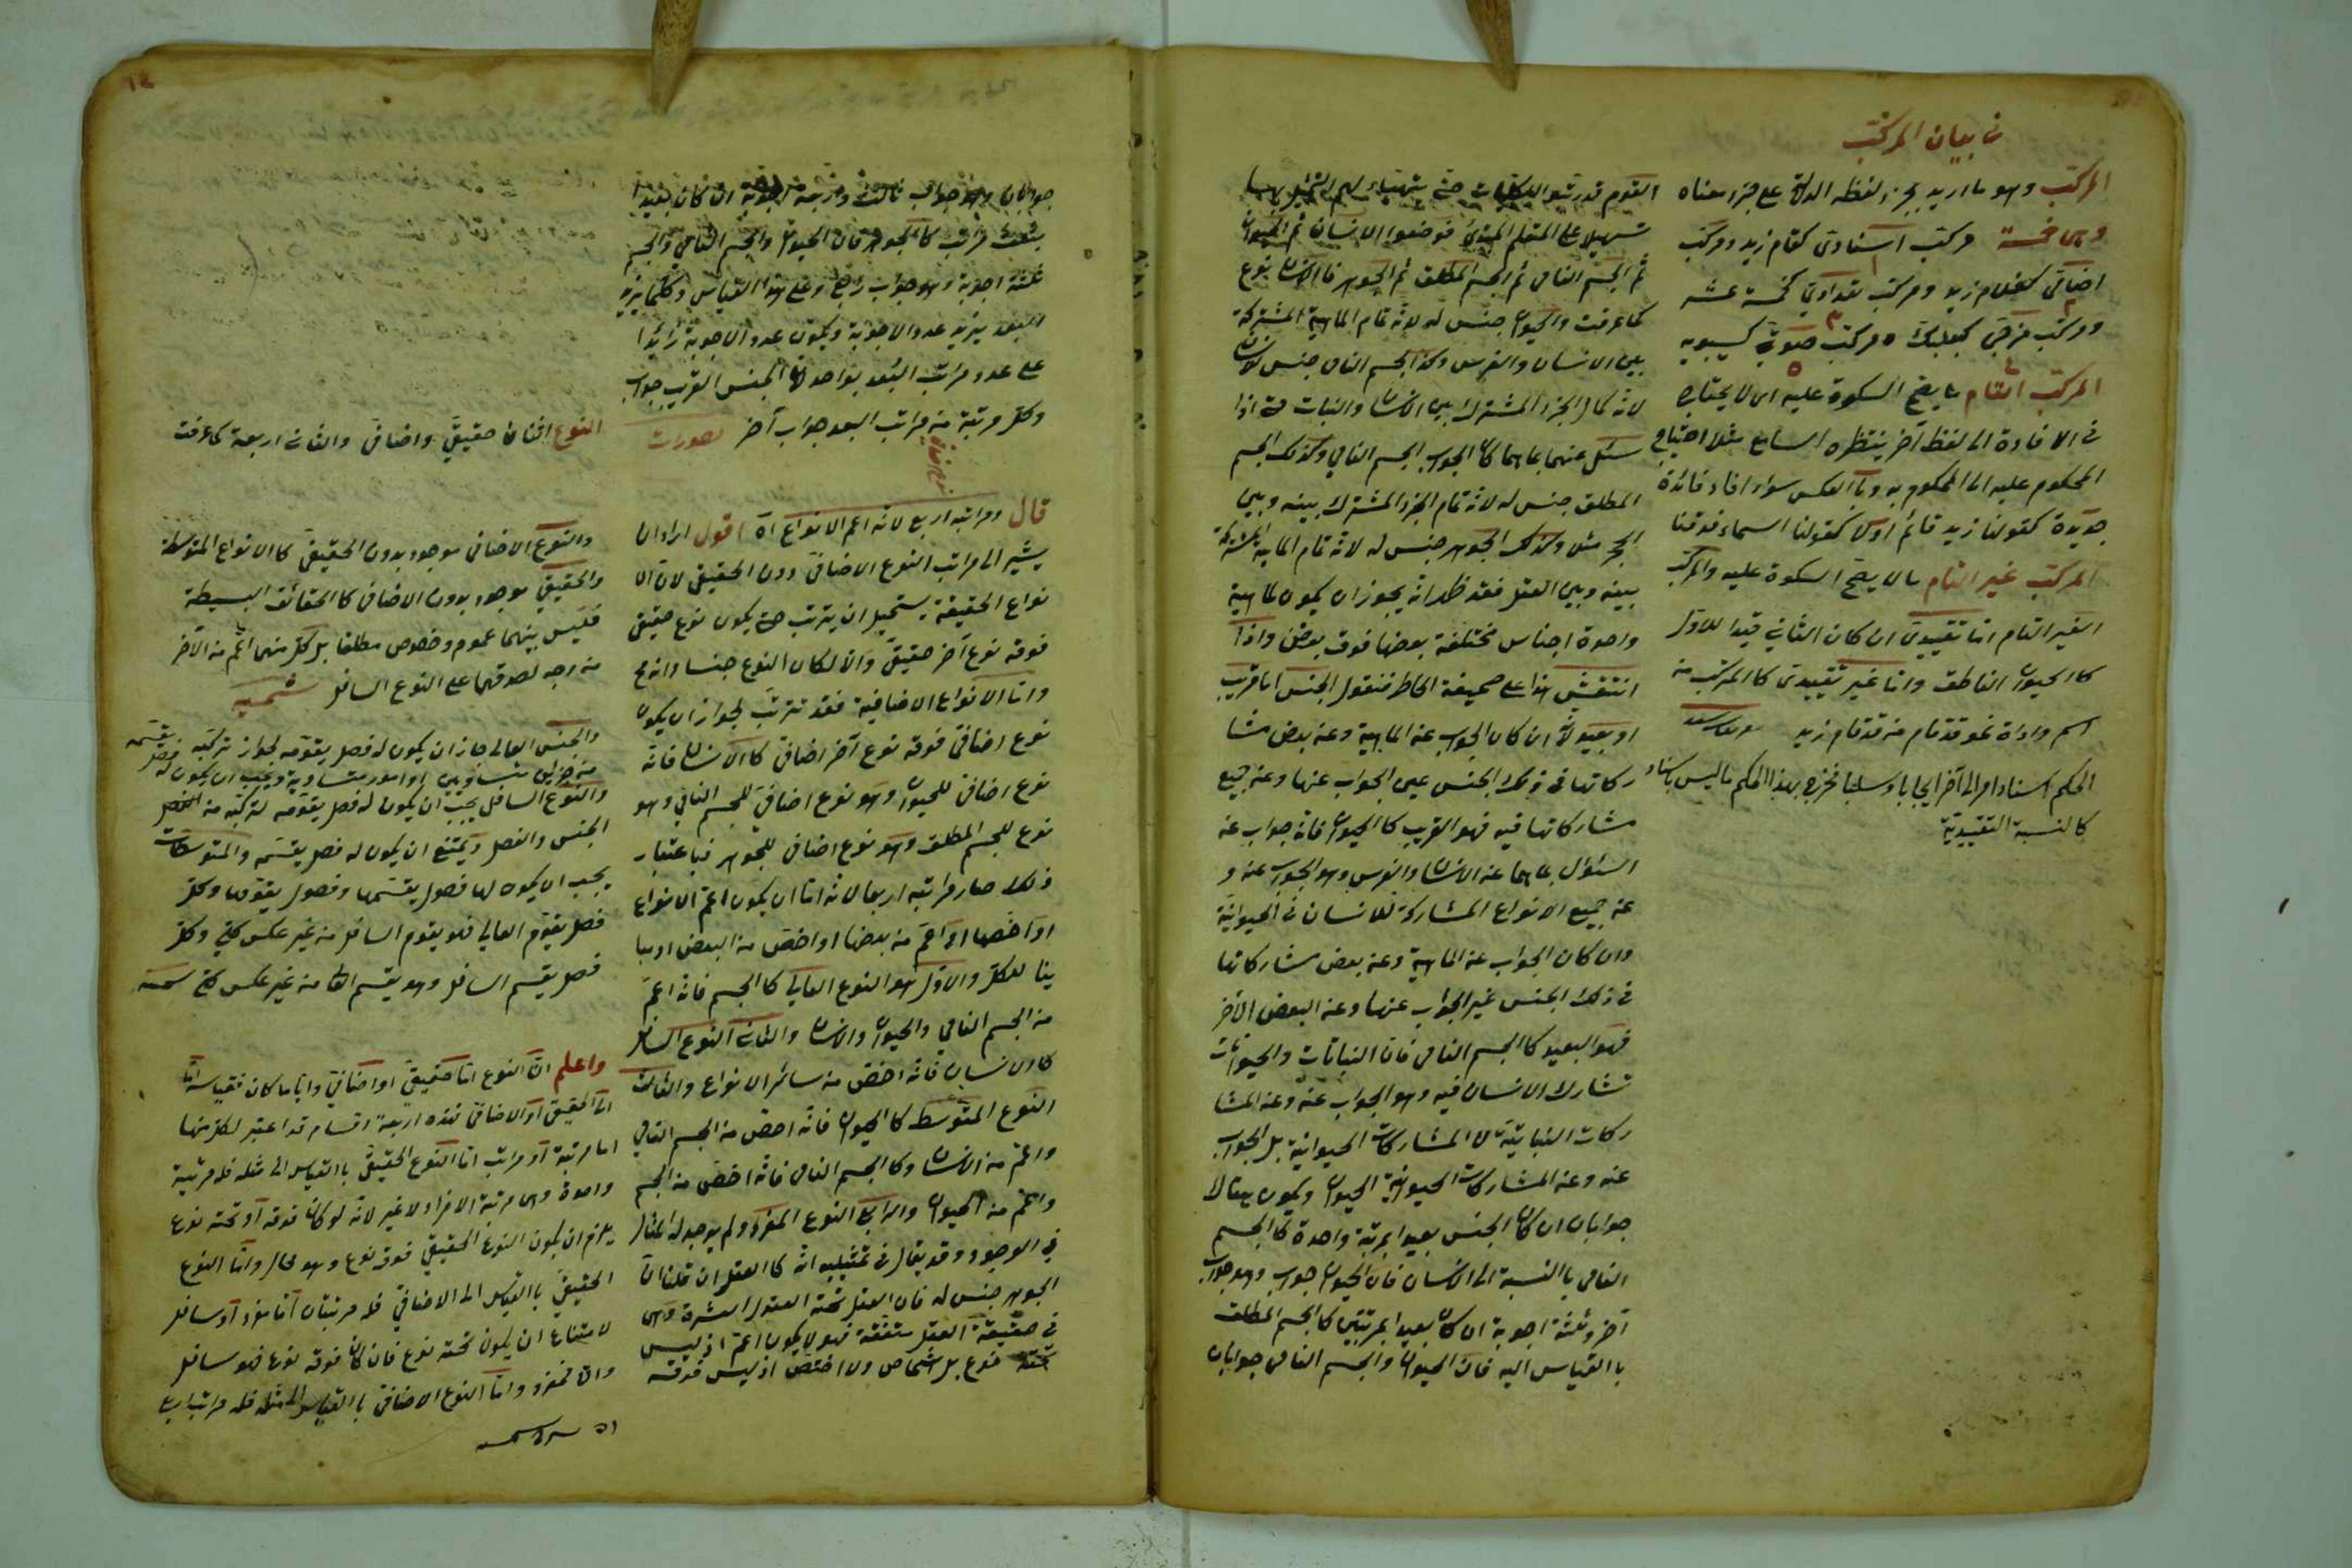 في بيان المركب
المركب وهو ما اريد بجزء لفظه الدلالة على جزء معناه
وهي خمسة مركب اسنادي كقام زيد ومركب
اضافي كغلام زيد ومركب تعدادي كخمسة عشر
ومركب مزجي كبعلبك ومركب صوتي كسيبويه
المركب التام ما يصح السكوة عليه اى لا يحتاج
في الافادة الى لفظ آخر ينتظره السامع مثل احتياج
المحكوم عليه الى المحكوم به وبالعكس سواء افاد فائدة
جديدة كقولنا زيد قائم اولا كقولنا السماء فوقنا
المركب غير التام ما لا يصح السكوة عليه والمركب
الغير التام اما تقييدي ان كان الثاني قيدا للاول
كالحيوان الناطق واما غير تقييدي كالمركب من
اسم واداة نحو قد قام من قد قام زيد
الحكم اسناد امر الى آخر ايجابا وسلبا فخرج بهذا الحكم ما ليس باسناد
كالنسبة التقييدية
القوم قد رتبوا الكليات حتى يتهياء لهم التمثيل بها
تسهيلا على المتعلم المبتدئ فوضعوا الانسان ثم الحيوان
ثم الجسم النامي ثم الجسم المطلق ثم الجوهر فالانسان نوع
كما عرفت والحيوان جنس له لانه تمام الماهية المشتركة
بين الانسان والفرس وكذا الجسم النامي جنس للانسان
لانه كمال الجزء المشترك بين الانسان والنبات حتى اذا
سئل عنهما بما هما كان الجواب الجسم النامي وكذلك الجسم
المطلق جنس له لانه تمام الجزء المشترك بينه وبين
الحجر مثلا وكذلك الجوهر جنس له لانه تمام الماهية المشتركة
بينه وبين العقل فقد ظهر انه يجوز ان يكون لماهية
واحدة اجناس مختلفة بعضها فوق بعض واذا
انتقش هذا على صحيفة الخاطر فنقول الجنس اما قريب
او بعيد لانه ان كان الجواب عن الماهية وعن بعض مشا
ركاتها في ذلك الجنس عين الجواب عنها وعن جميع
مشاركاتها فيه فهو القريب كالحيوان فانه جواب عن
السئوال بما هما عن الانسان والفرس وهو الجواب عنه و
عن جميع الانواع المشاركة للانسان في الحيوانية
وان كان الجواب عن الماهية وعن بعض مشاركاتها
في ذلك الجنس غير الجواب عنها وعن البعض الآخر
فهو البعيد كالجسم النامي فان النباتات والحيوانات
تشارك الانسان فيه وهو الجواب عنه وعن المشا
ركات النباتية لا المشاركات الحيوانية بل الجواب
عنه وعن المشاركات الحيوانية الحيوان ويكون هنالك
جوابان ان كان الجنس بعيدا بمرتبة واحدة كالجسم
النامي بالنسبة الى الانسان فان الحيوان جواب وهو جواب
آخر وثلثة اجوبة ان كان بعيدا بمرتبتين كالجسم المطلق
بالقياس اليه فان الحيوان والجسم النامي جوابان
جوابان وهو جواب ثالث واربعة اجوبة ان كان بعيدا
بثلث مراتب كالجوهر فان الحيوان والجسم النامي والجسم
ثلثة اجوبة وهو جواب رابع وعلى هذا القياس وكلما يزيد
البعد يزيد عدد الاجوبة ويكون عدد الاجوبة زائدا
على عدد مراتب البعد بواحد لان الجنس القريب جواب
وكل مرتبة من مراتب البعد جواب آخر تصورات
نوع اضافي
قال ومراتبه اربع لانه اعم الانواع اه اقول اراد ان
يشير الى مراتب النوع الاضافي دون الحقيقي لان الا
نواع الحقيقة يستحيل ان يترتب حتى يكون نوع حقيقي
فوقه نوع آخر حقيقي والا لكان النوع جنسا وانه مح
واما الانواع الاضافية فقد تترتب لجواز ان يكون
نوع اضافي فوقه نوع آخر اضافي كالانسان فانه
نوع اضافي للحيوان وهو نوع اضافي للجسم النامي وهو
نوع للجسم المطلق وهو نوع اضافي للجوهر فباعتبار
ذلك صار مراتبه اربعا لانه اما ان يكون اعم الانواع
او اخصها او اعم من بعضها واخص من البعض او مبا
ينا للكل والاول هو النوع العالي كالجسم فانه اعم
من الجسم النامي والحيوان والانسان والثاني النوع السافل
كالانسان فانه اخص من سائر الانواع والثالث
النوع المتوسط كالحيوان فانه اخص من الجسم النامي
واعم من الانسان وكالجسم النامي فانه اخص من الجسم
واعم من الحيوان والرابع النوع المفرد ولم يوجد له مثال
في الوجود وقد يقال في تمثيله انه كالعقل ان قلنا ان
الجوهر جنس له فان العقل تحته العقول العشرة وهي
في حقيقة العقل متفقة فهو لا يكون اعم اذ ليس
تحته نوع بل اشخاص ولا اخص اذ ليس فوقه
النوع اثنان حقيقي واضافي والثاني اربعة كما عرفت
والنوع الاضافي موجود بدون الحقيقي كالانواع المتوسطة
والحقيقي موجود بدون الاضافي كالحقائق البسيطة
فليس بينهما عموم وخصوص مطلقا بل كل منهما اعم من الآخر
من وجه لصدقهما على النوع السافل شمسيه
والجنس العالي جاز ان يكون له فصل يقومه لجواز تركبه
من جزئين متساويين او امور متساوية ويجب ان يكون له فصل يقسمه
والنوع السافل يجب ان يكون له فصل يقومه لتركبه من
الجنس والفصل ويمتنع ان يكون له فصل يقسمه والمتوسطات
يجب ان يكون لها فصول يقسمها وفصول يقومها وكل
فصل يقوم العالي فهو يقوم السافل من غير عكس كلي وكل
فصل يقسم السافل وهو يقسم العا من غير عكس كلي
واعلم ان النوع اما حقيقي او اضافي واياما كان فقياسه اما
الى الحقيقي او الاضافي فهذه اربعة اقسام قد اعتبر لكل منها
اما مرتبة او مراتب اما النوع الحقيقي بالقياس الى مثله فله مرتبة
واحدة وهي مرتبة الافراد لا غير لانه لو كان فوقه او تحته نوع
يلزم ان يكون النوع الحقيقي فوقه نوع وهو محال واما النوع
الحقيقي بالقياس الى الاضافي فله مرتبتان اما مفرد او سافل
لامتناع ان يكون تحته نوع فان كان فوقه نوع فهو سافل
والا فمفرد واما النوع الاضافي بالقياس الى مثله فله مراتب اربع